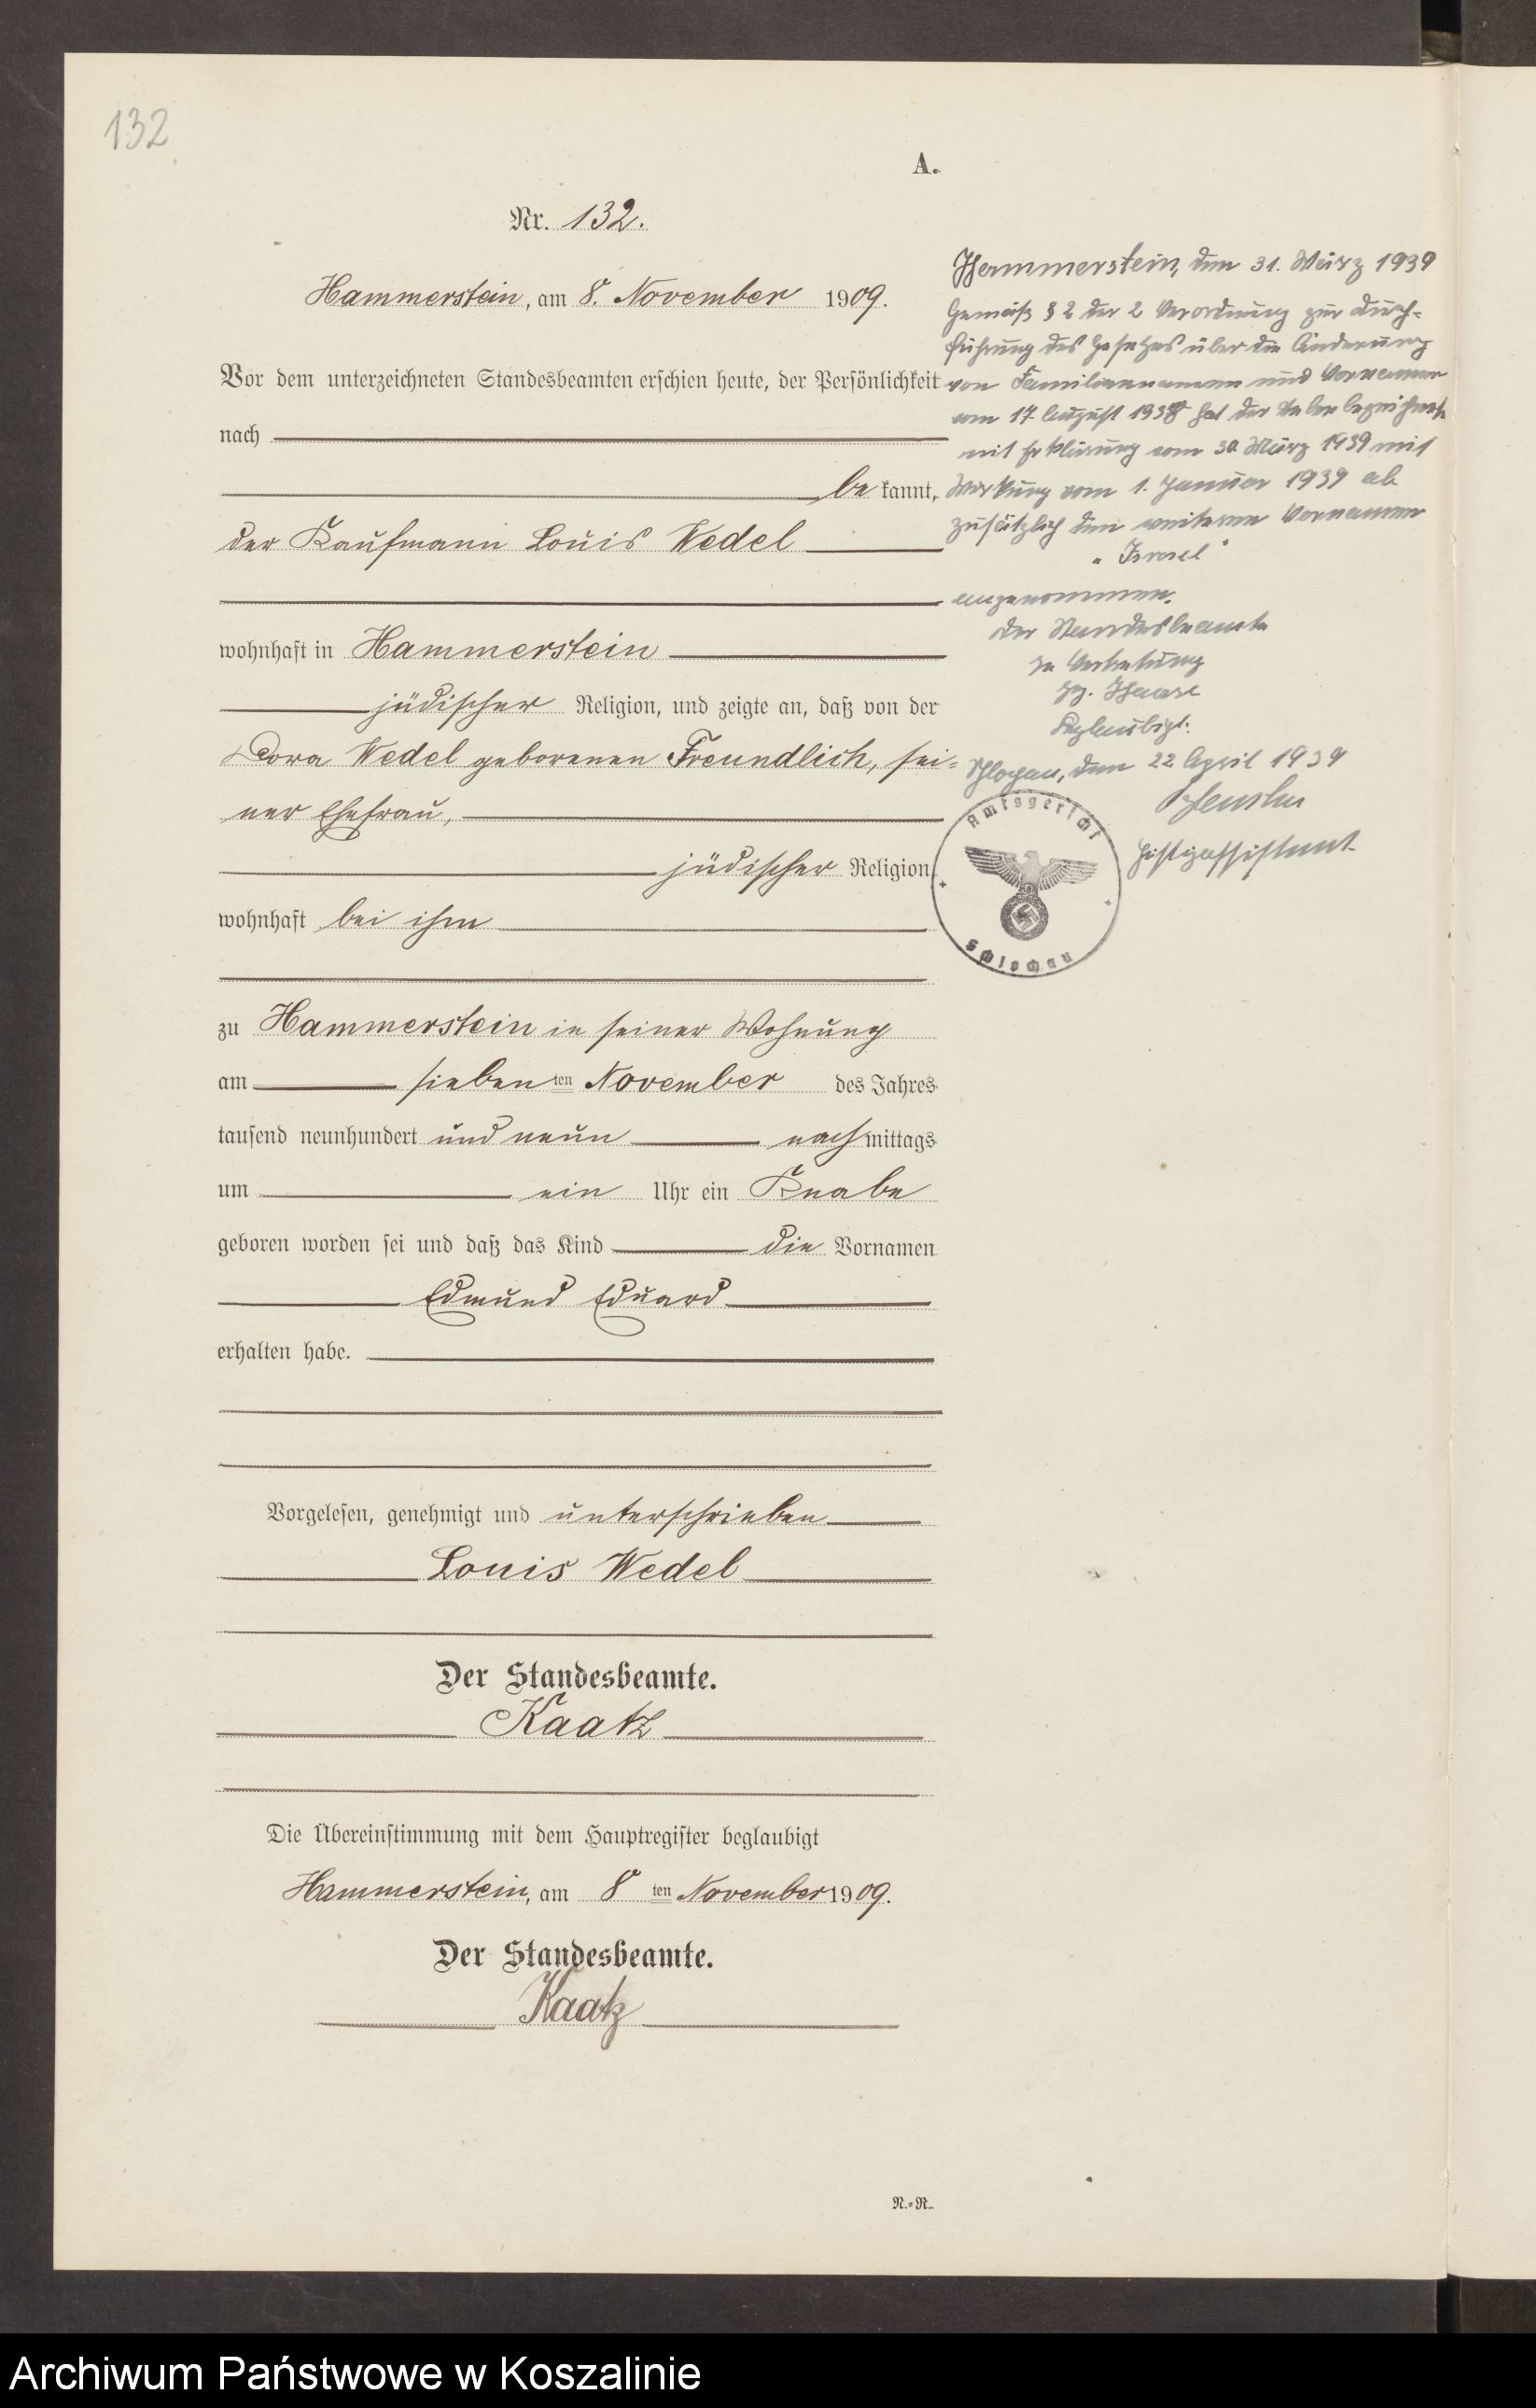 132
A.
Nr. 132.
Hammerstein, am 8. November 1909.
Vor dem unterzeichneten Standesbeamten erschien heute, der Persönlichkeit
nach
be kannt,
der Kaufmann Louis Wedel
wohnhaft in Hammerstein
jüdischer Religion, und zeigte an, daß von der
Dora Wedel geborenen Freundlich, sei-
ner Ehefrau,
jüdischer Religion
wohnhaft bei ihm
zu Hammerstein in seiner Wohnung
am siebenten November des Jahres
tausend neunhundert und neun nachmittags
um ein Uhr ein Knabe
geboren worden sei und daß das Kind die Vornamen
Edmund Eduard
erhalten habe.
Vorgelesen, genehmigt und unterschrieben
Louis Wedel
Der Standesbeamte.
Kaatz
Die Übereinstimmung mit dem Hauptregister beglaubigt
Hammerstein, am 8ten November 1909.
Der Standesbeamte.
Kaatz
N.-R.
Hammerstein, den 31. März 1939
Gemäß § 2 der 2 Verordnung zur Durch-
führung des Gesetzes über die Änderung
von Familiennamen und Vornamen
vom 17. August 1938 hat der Nebenbezeichnete
mit Erklärung vom 30. März 1939 mit
Wirkung vom 1. Januar 1939 ab
zusätzlich den weiteren Vornamen
"Israel"
angenommen.
Der Standesbeamte
In Vertretung
gez. Haase
Beglaubigt:
Schlochau, den 22 April 1939
Justizassistent
Amtsgericht
Schlochau
Archiwum Państwowe w Koszalinie